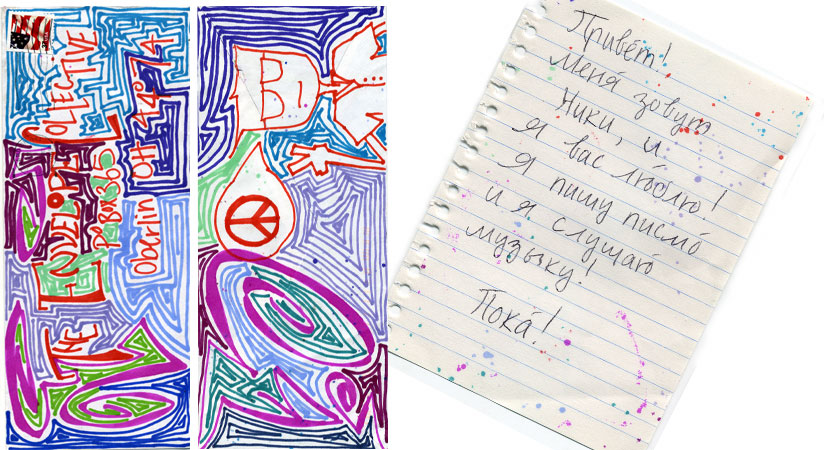 THE ENVELOPE COLLECTIVE
PO BOX
Oberlin OH 44074
Привет!
Меня зовут
Ники, и
я вас люблю!
я пишу писмо
и я слушаю
музыку!
Пока!